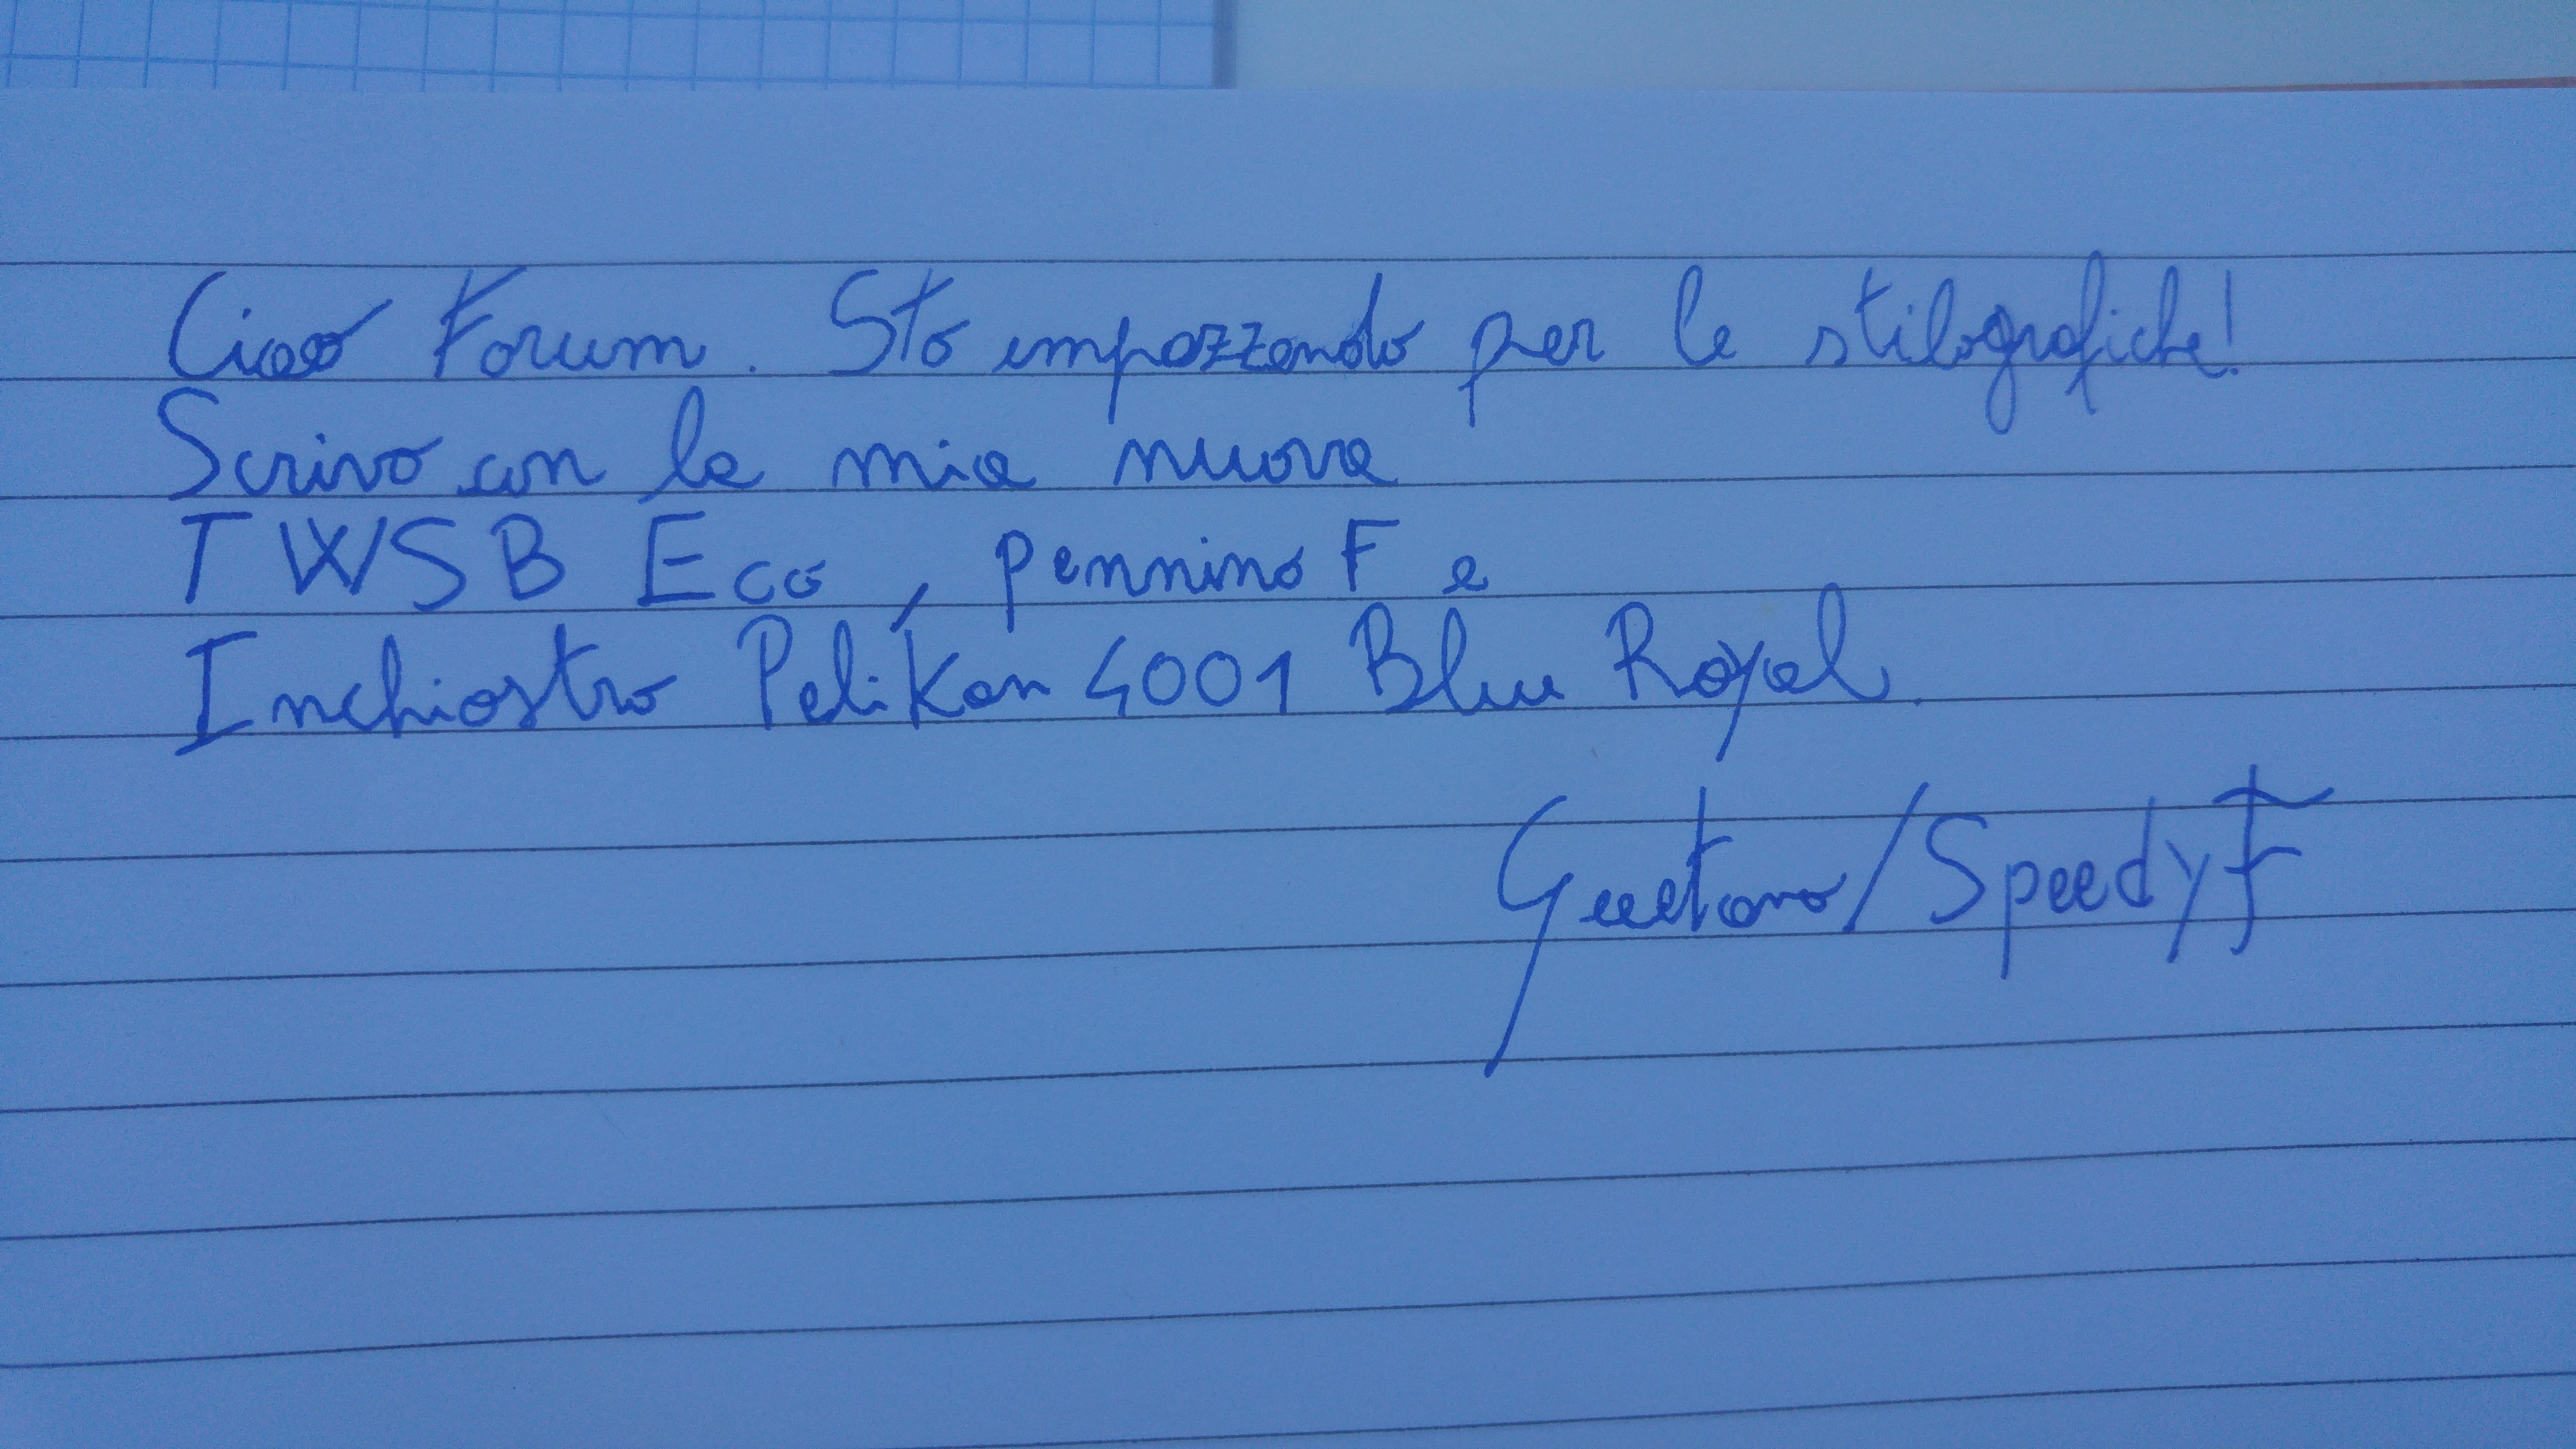 Ciao Forum. Sto impazzendo per le stilografiche!
Scrivo con la mia nuova
TWSB Eco, pennino F e
Inchiostro Pelikan 4001 Blu Royal.
Gaetano/SpeedyF